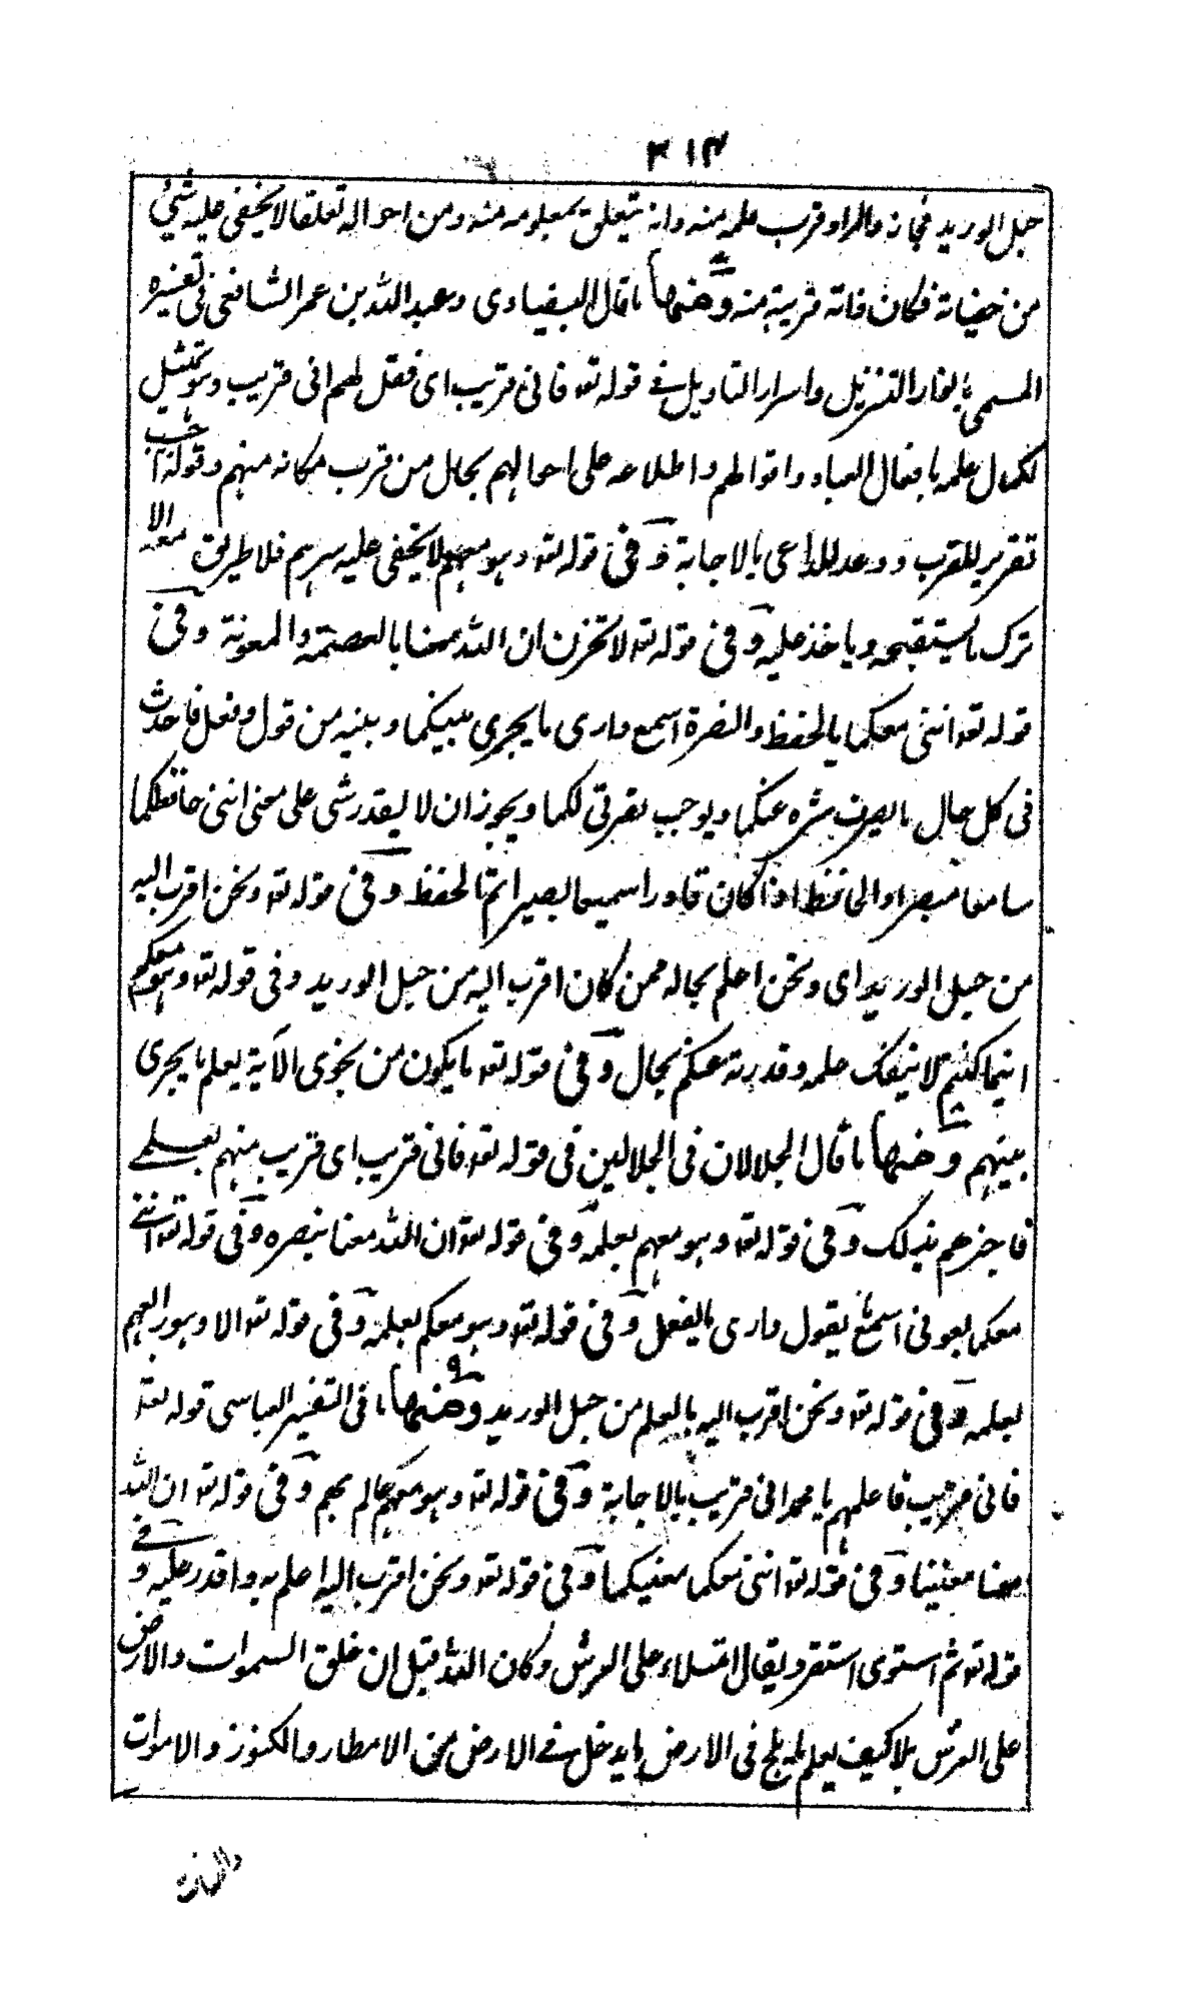 ٣١٣
حبل الوريد فمجاز والمراد قرب علمه منه وانه يتعلق بمعلومه منه ومن احواله تعلقا لا يخفى عليه شئ
من خفياته فكان ذاته قريبة منه ومنها ما قال البيضاوى وعبد الله بن عمر الشافعى فى تفسيره
المسمى بانوار التنزيل واسرار التاويل فى قوله تع فانى قريب اى فقل لهم انى قريب وهو تمثيل
لكمال علمه بافعال العباد واقوالهم واطلاعه على احوالهم بحال من قرب مكانه منهم وقوله اجيب
تقرير للقرب ووعد للداعى بالاجابة وفى قوله تع وهو معهم لا يخفى عليه سرهم فلا طريق معه الا
ترك ما يستقبحه وياخذ عليه وفى قوله تع لا تحزن ان الله معنا بالعصمة والمعونة وفى
قوله تع اننى معكما بالحفظ والنصرة اسمع وارى ما يجرى بينكما وبينه من قول وفعل فاحدث
فى كل حال ما يصرف شره عنكما ويوجب نصرتى لكما ويجوز ان لا يقدر شى على معنى اننى حافظكما
سامعا مبصرا والحافظ اذا كان قادرا سميعا بصيرا تم الحفظ وفى قوله تع ونحن اقرب اليه
من حبل الوريد اى ونحن اعلم بحاله ممن كان اقرب اليه من حبل الوريد وفى قوله تع وهو معكم
اينما كنتم لا ينفك علمه وقدرته عنكم بحال وفى قوله تع ما يكون من نجوى الآية يعلم ما يجرى
بينهم ومنها ما قال الجلالان فى الجلالين فى قوله تع فانى قريب اى قريب منهم بعلمى
فاخبرهم بذلك وفى قوله تع وهو معهم بعلمه وفى قوله تع ان الله معنا بنصره وفى قوله تع اننى
معكما بعونى اسمع ما يقول وارى ما يفعل وفى قوله تع وهو معكم بعلمه وفى قوله تع الا وهو رابعهم
بعلمه وفى قوله تع ونحن اقرب اليه بالعلم من حبل الوريد ومنها ما فى التفسير العباسى قوله تع
فانى قريب فاعلمهم يا محمد انى قريب بالاجابة وفى قوله تع وهو معهم عالم بهم وفى قوله تع ان الله
معنا معيننا وفى قوله تع اننى معكما معينكما وفى قوله تع ونحن اقرب اليه اعلم به واقدر عليه وفى
قوله تع ثم استوى استقر ويقال امتلاء على العرش وكان الله قبل ان خلق السموات والارض
على العرش بلا كيف يعلم ما يلج فى الارض ما يدخل فى الارض من الامطار والكنوز والاموات